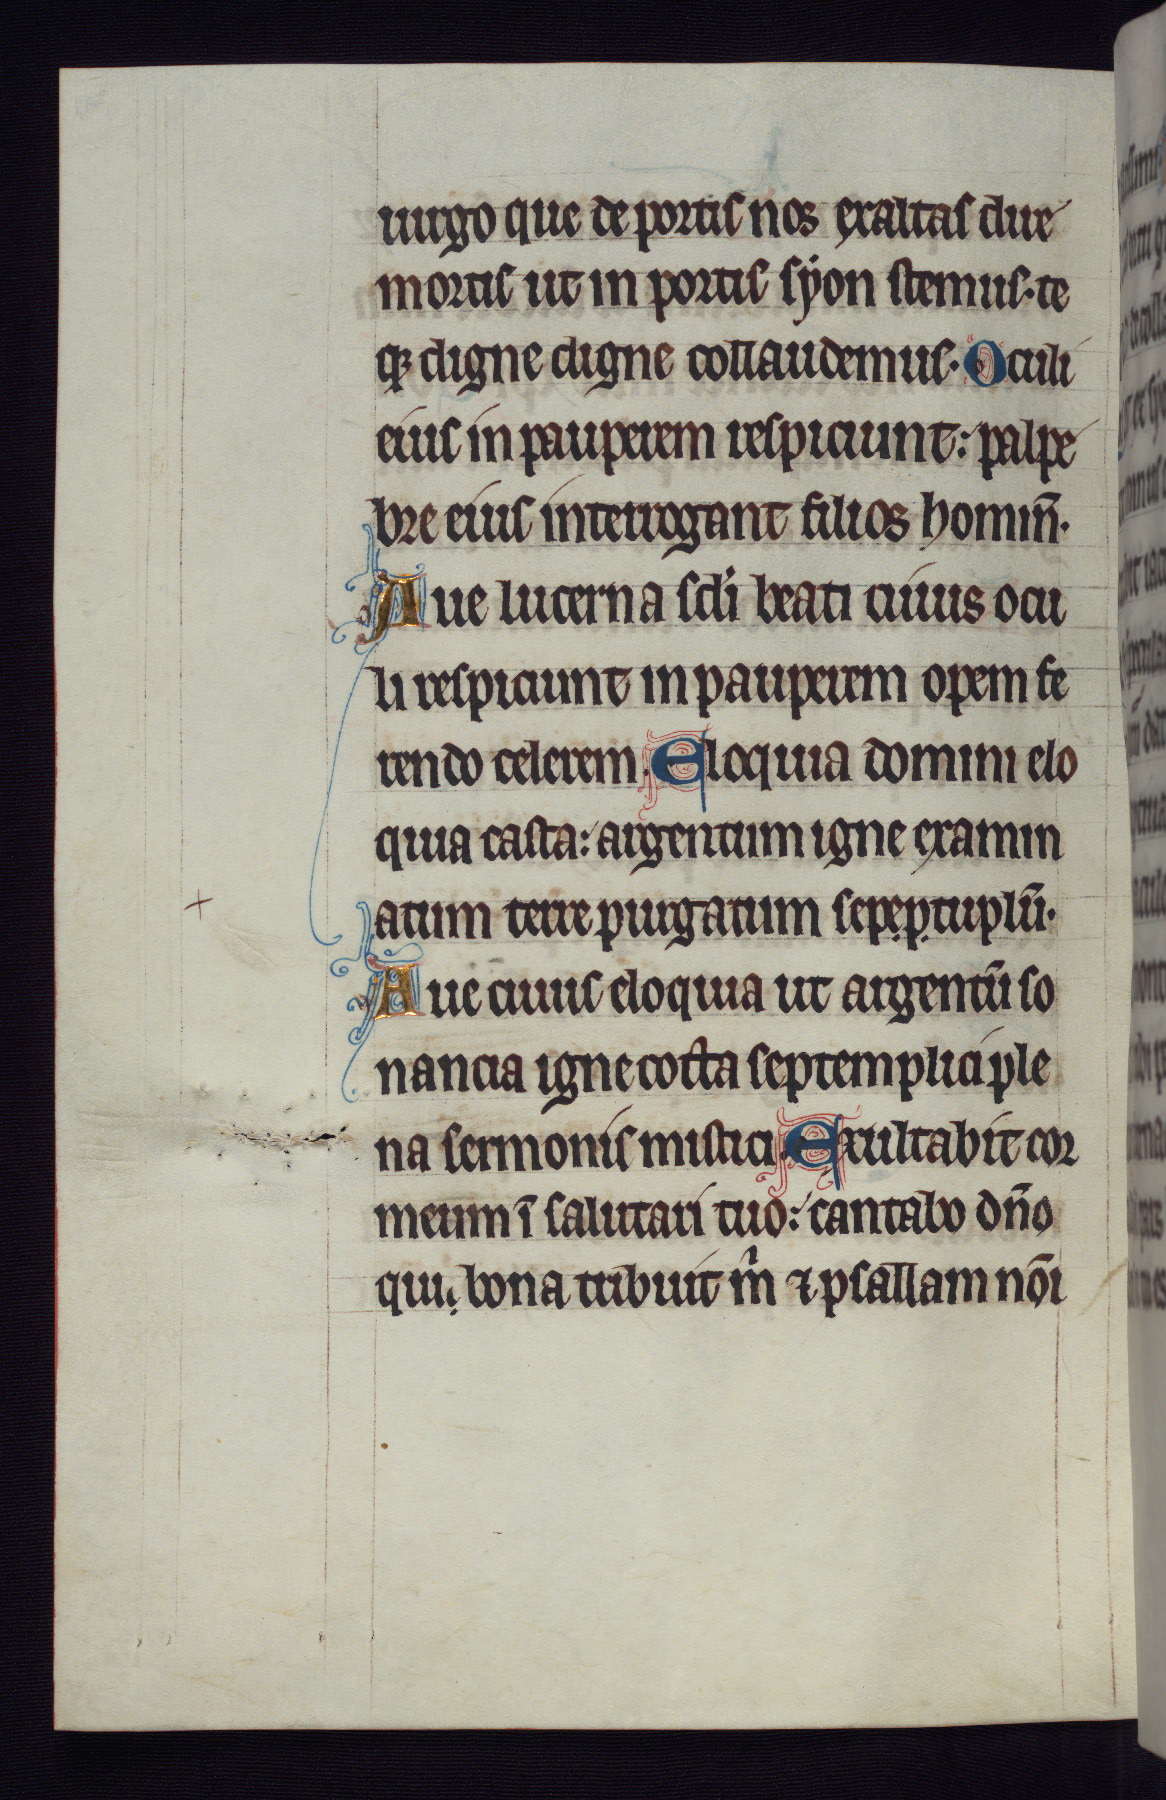 uirgo que de portis nos exaltas dire
mortis ut in portis syon stemus· te
qꝫ digne digne collaudemus· Oculi
eius in pauperem respiciunt: palpe
bre eius interrogant filios homin̄·
Aue lucerna scl̓i beati cuius ocu
li respiciunt in pauperem opem fe
rendo celerem. Eloquia domini elo
quia casta: argentum igne examin
atum terre purgatum sepeptuplū·
Aue cuius eloquia ut argentū so
nancia igne cocta septempliciple
na sermonis mistici. Exultabit cor
meum ī salutari tuo: cantabo dn̄o
qui bona tribuit m̓ ⁊ psallam nōi